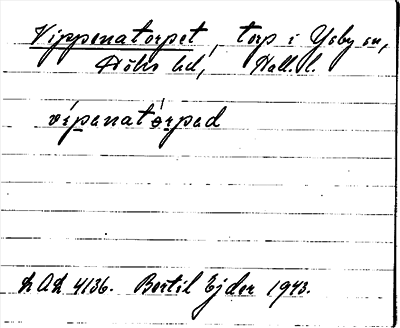 Vippenatorpet, torp i Ysby sn,
Höks hd, Hall. l.
vípenatòrped
LAL 4136. Bertil Ejder 1943.